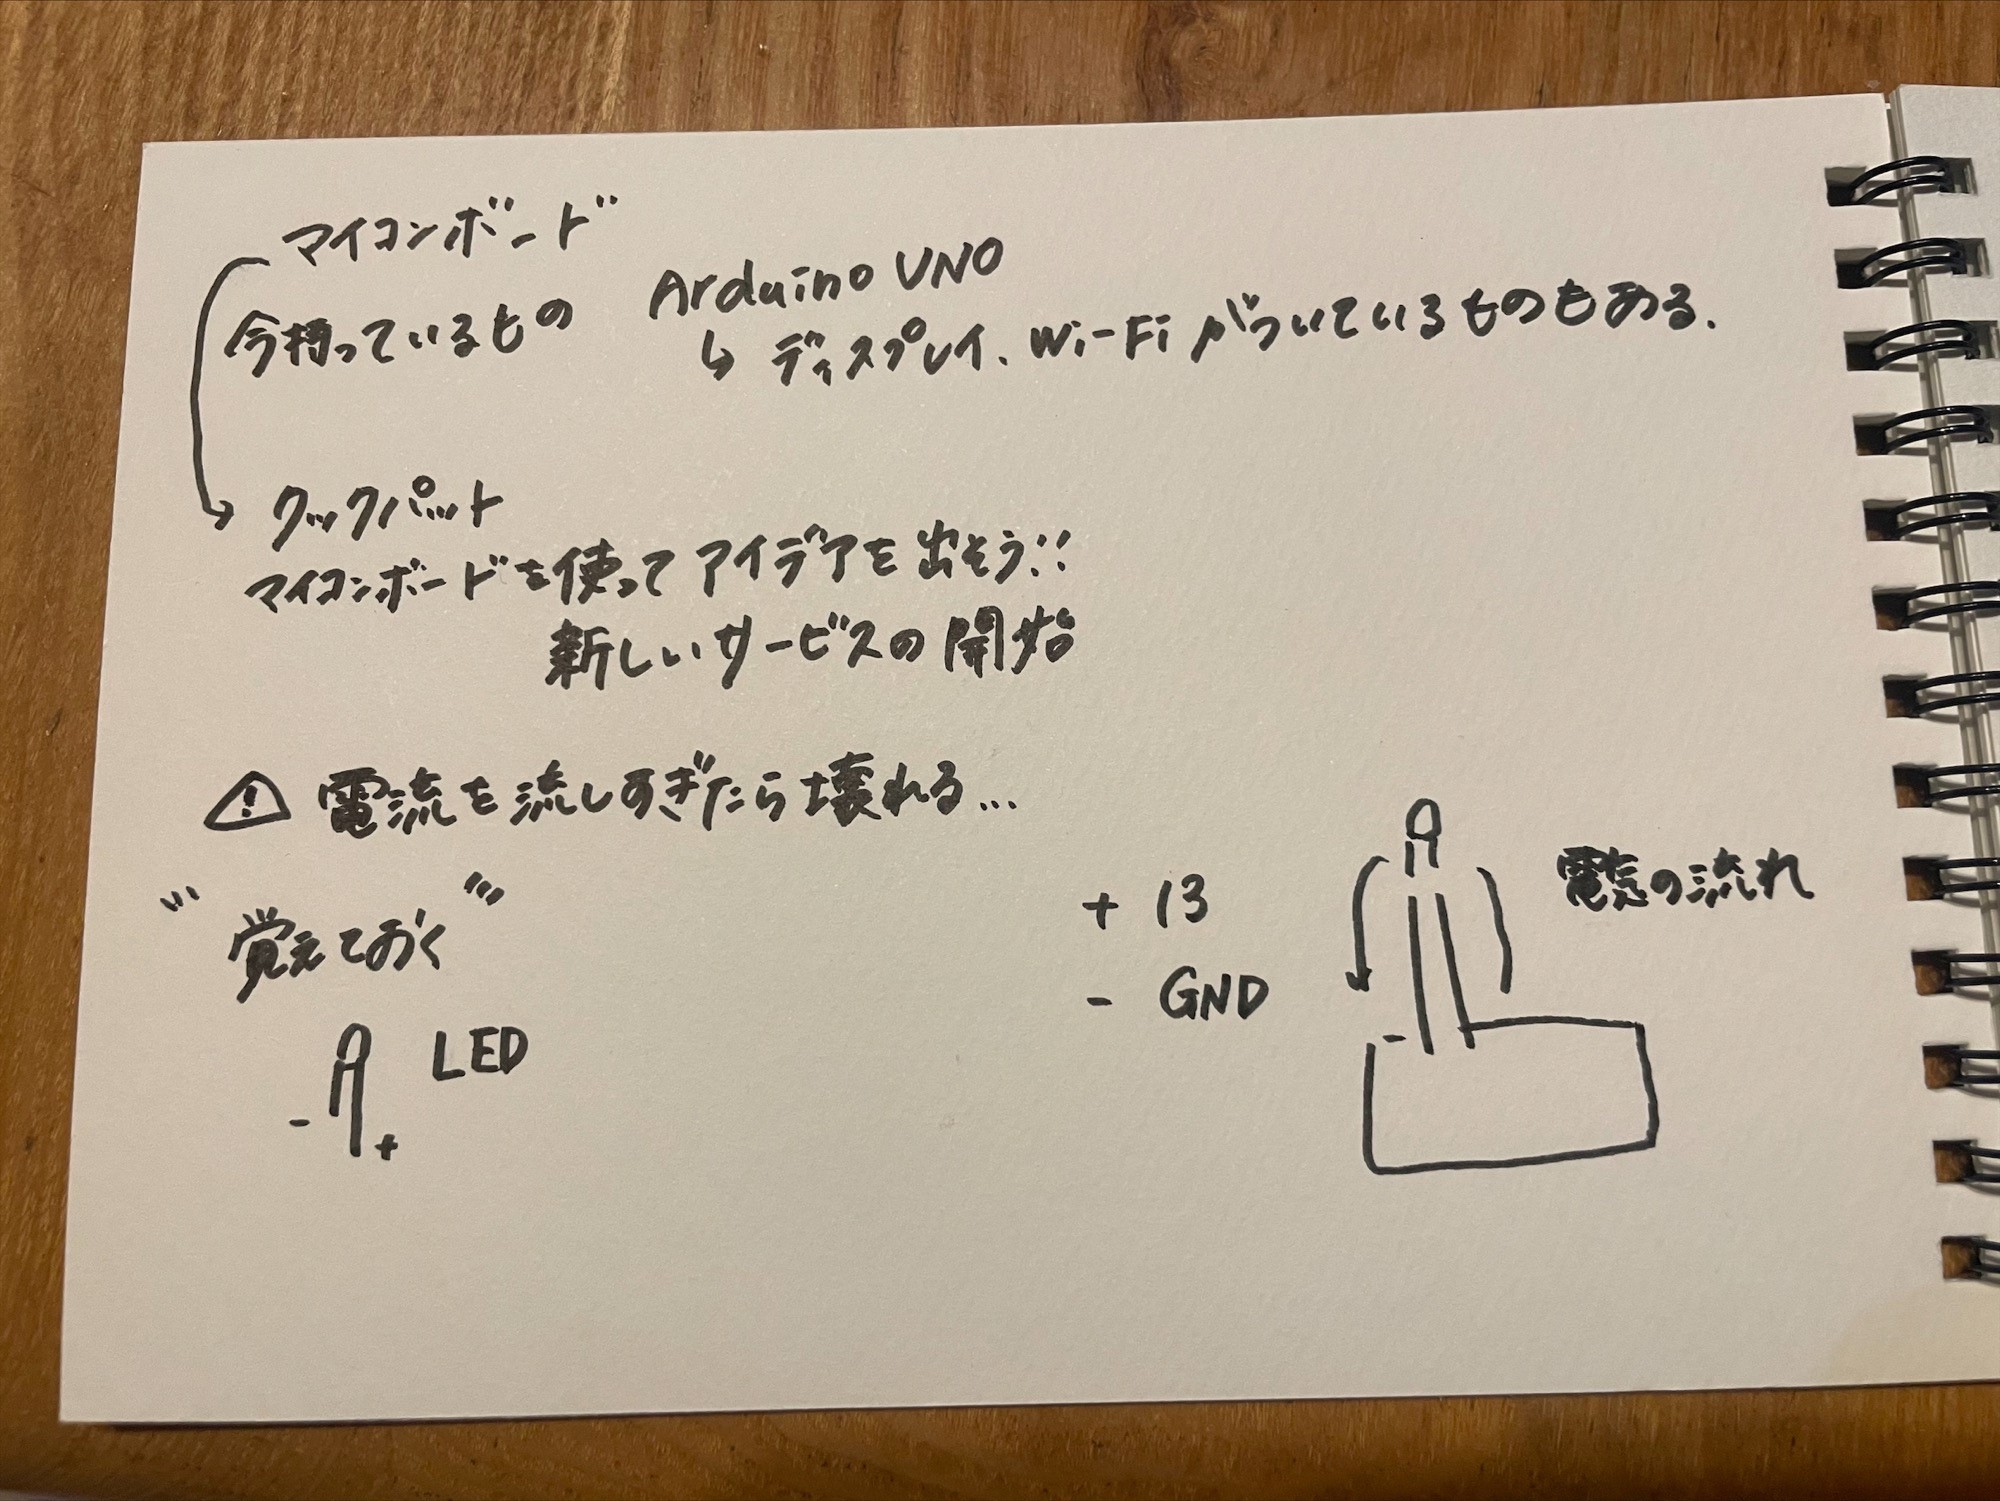 マイコンボード
今持っているもの Arduino UNO
↳ ディスプレイ、Wi-Fiがついているものもある.
クックパット
マイコンボードを使ってアイデアを出そう!!
新しいサービスの開始
⚠ 電流を流しすぎたら壊れる...
覚えておく
LED
- +
+ 13
- GND
電気の流れ
-